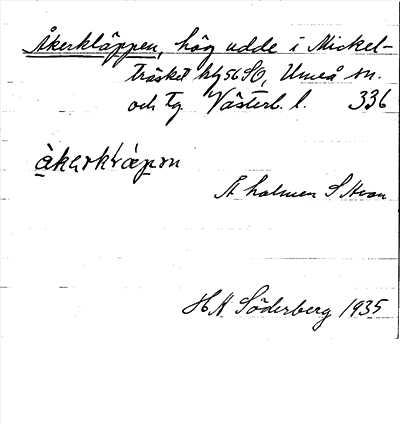 Åkerkläppen, hög udde i Mickel-
träsket kbl 56 SO, Umeå sn.
och tg Västerb. l. 336
Å holmen S Avan
H A Söderberg 1935